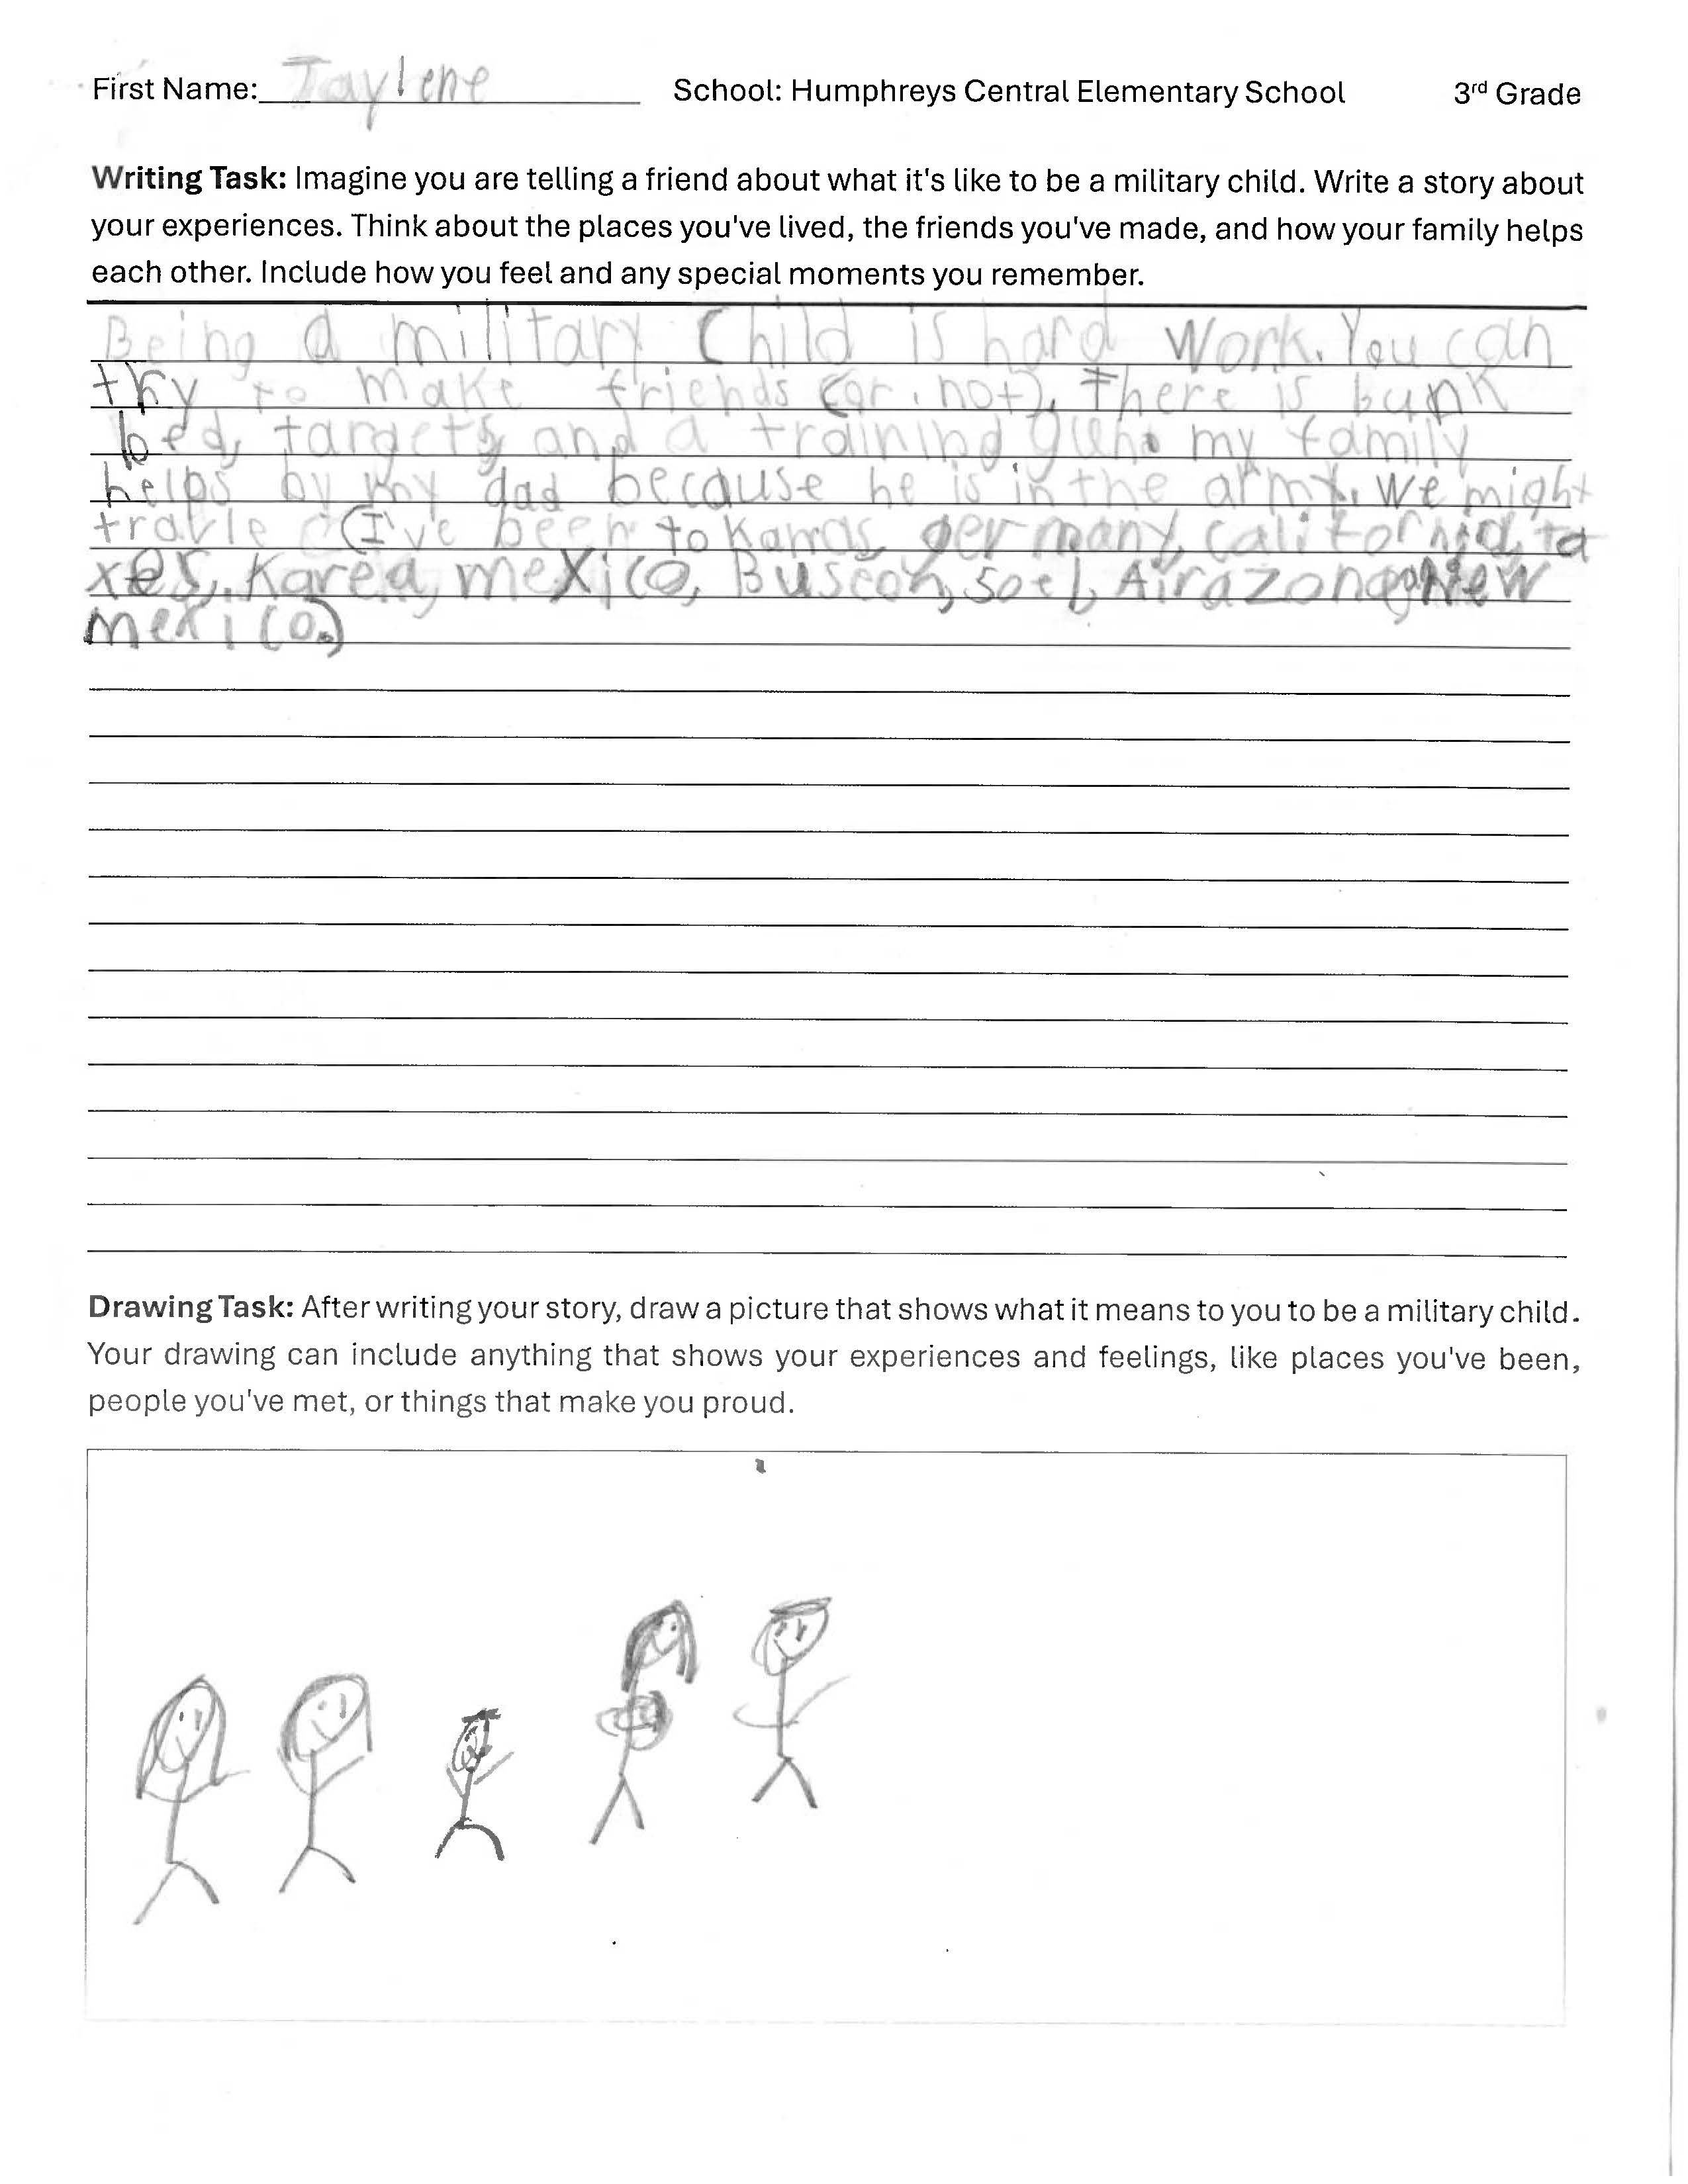 First Name: Jaylene School: Humphreys Central Elementary School 3rd Grade
Writing Task: Imagine you are telling a friend about what it's like to be a military child. Write a story about
your experiences. Think about the places you've lived, the friends you've made, and how your family helps
each other. Include how you feel and any special moments you remember.
Being a military Child is hard Work. You can
try to make friends (or not), There is bunk
bed, targets and a training my family
helps by my dad because he is in the army. We might
travle (I've been to germany, california, ta
xes, Karea, mexico, Buscon, soel, Airazona New
mexico.)
Drawing Task: After writing your story, draw a picture that shows what it means to you to be a military child.
Your drawing can include anything that shows your experiences and feelings, like places you've been,
people you've met, or things that make you proud.